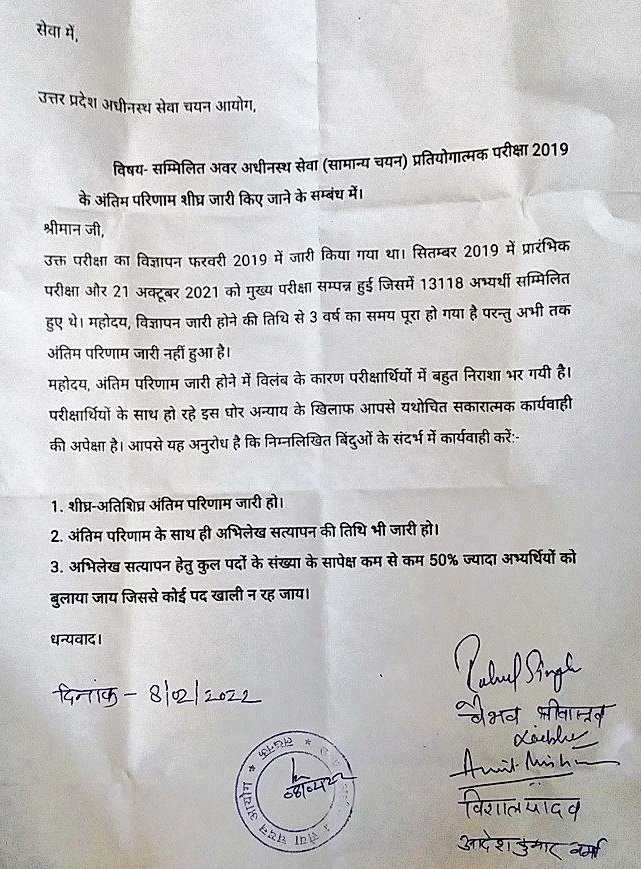 सेवा में,
उत्तर प्रदेश अधीनस्थ सेवा चयन आयोग,
विषय- सम्मिलित अवर अधीनस्थ सेवा (सामान्य चयन) प्रतियोगात्मक परीक्षा 2019
के अंतिम परिणाम शीघ्र जारी किए जाने के सम्बंध में।
श्रीमान जी,
उक्त परीक्षा का विज्ञापन फरवरी 2019 में जारी किया गया था। सितम्बर 2019 में प्रारंभिक
परीक्षा और 21 अक्टूबर 2021 को मुख्य परीक्षा सम्पन्न हुई जिसमें 13118 अभ्यर्थी सम्मिलित
हुए थे। महोदय, विज्ञापन जारी होने की तिथि से 3 वर्ष का समय पूरा हो गया है परन्तु अभी तक
अंतिम परिणाम जारी नहीं हुआ है।
महोदय, अंतिम परिणाम जारी होने में विलंब के कारण परीक्षार्थियों में बहुत निराशा भर गयी है।
परीक्षार्थियों के साथ हो रहे इस घोर अन्याय के खिलाफ आपसे यथोचित सकारात्मक कार्यवाही
की अपेक्षा है। आपसे यह अनुरोध है कि निम्नलिखित बिंदुओं के संदर्भ में कार्यवाही करें:-
1. शीघ्र-अतिशिघ्र अंतिम परिणाम जारी हो।
2. अंतिम परिणाम के साथ ही अभिलेख सत्यापन की तिथि भी जारी हो।
3. अभिलेख सत्यापन हेतु कुल पदों के संख्या के सापेक्ष कम से कम 50% ज्यादा अभ्यर्थियों को
बुलाया जाय जिससे कोई पद खाली न रह जाय।
धन्यवाद।
दिनांक - 8/02/2022
Rahul Singh
वैभव श्रीवास्तव
Amit Mishra
विशाल यादव
आदेश कुमार वर्मा
सेवा चयन आयोग * लखनऊ *